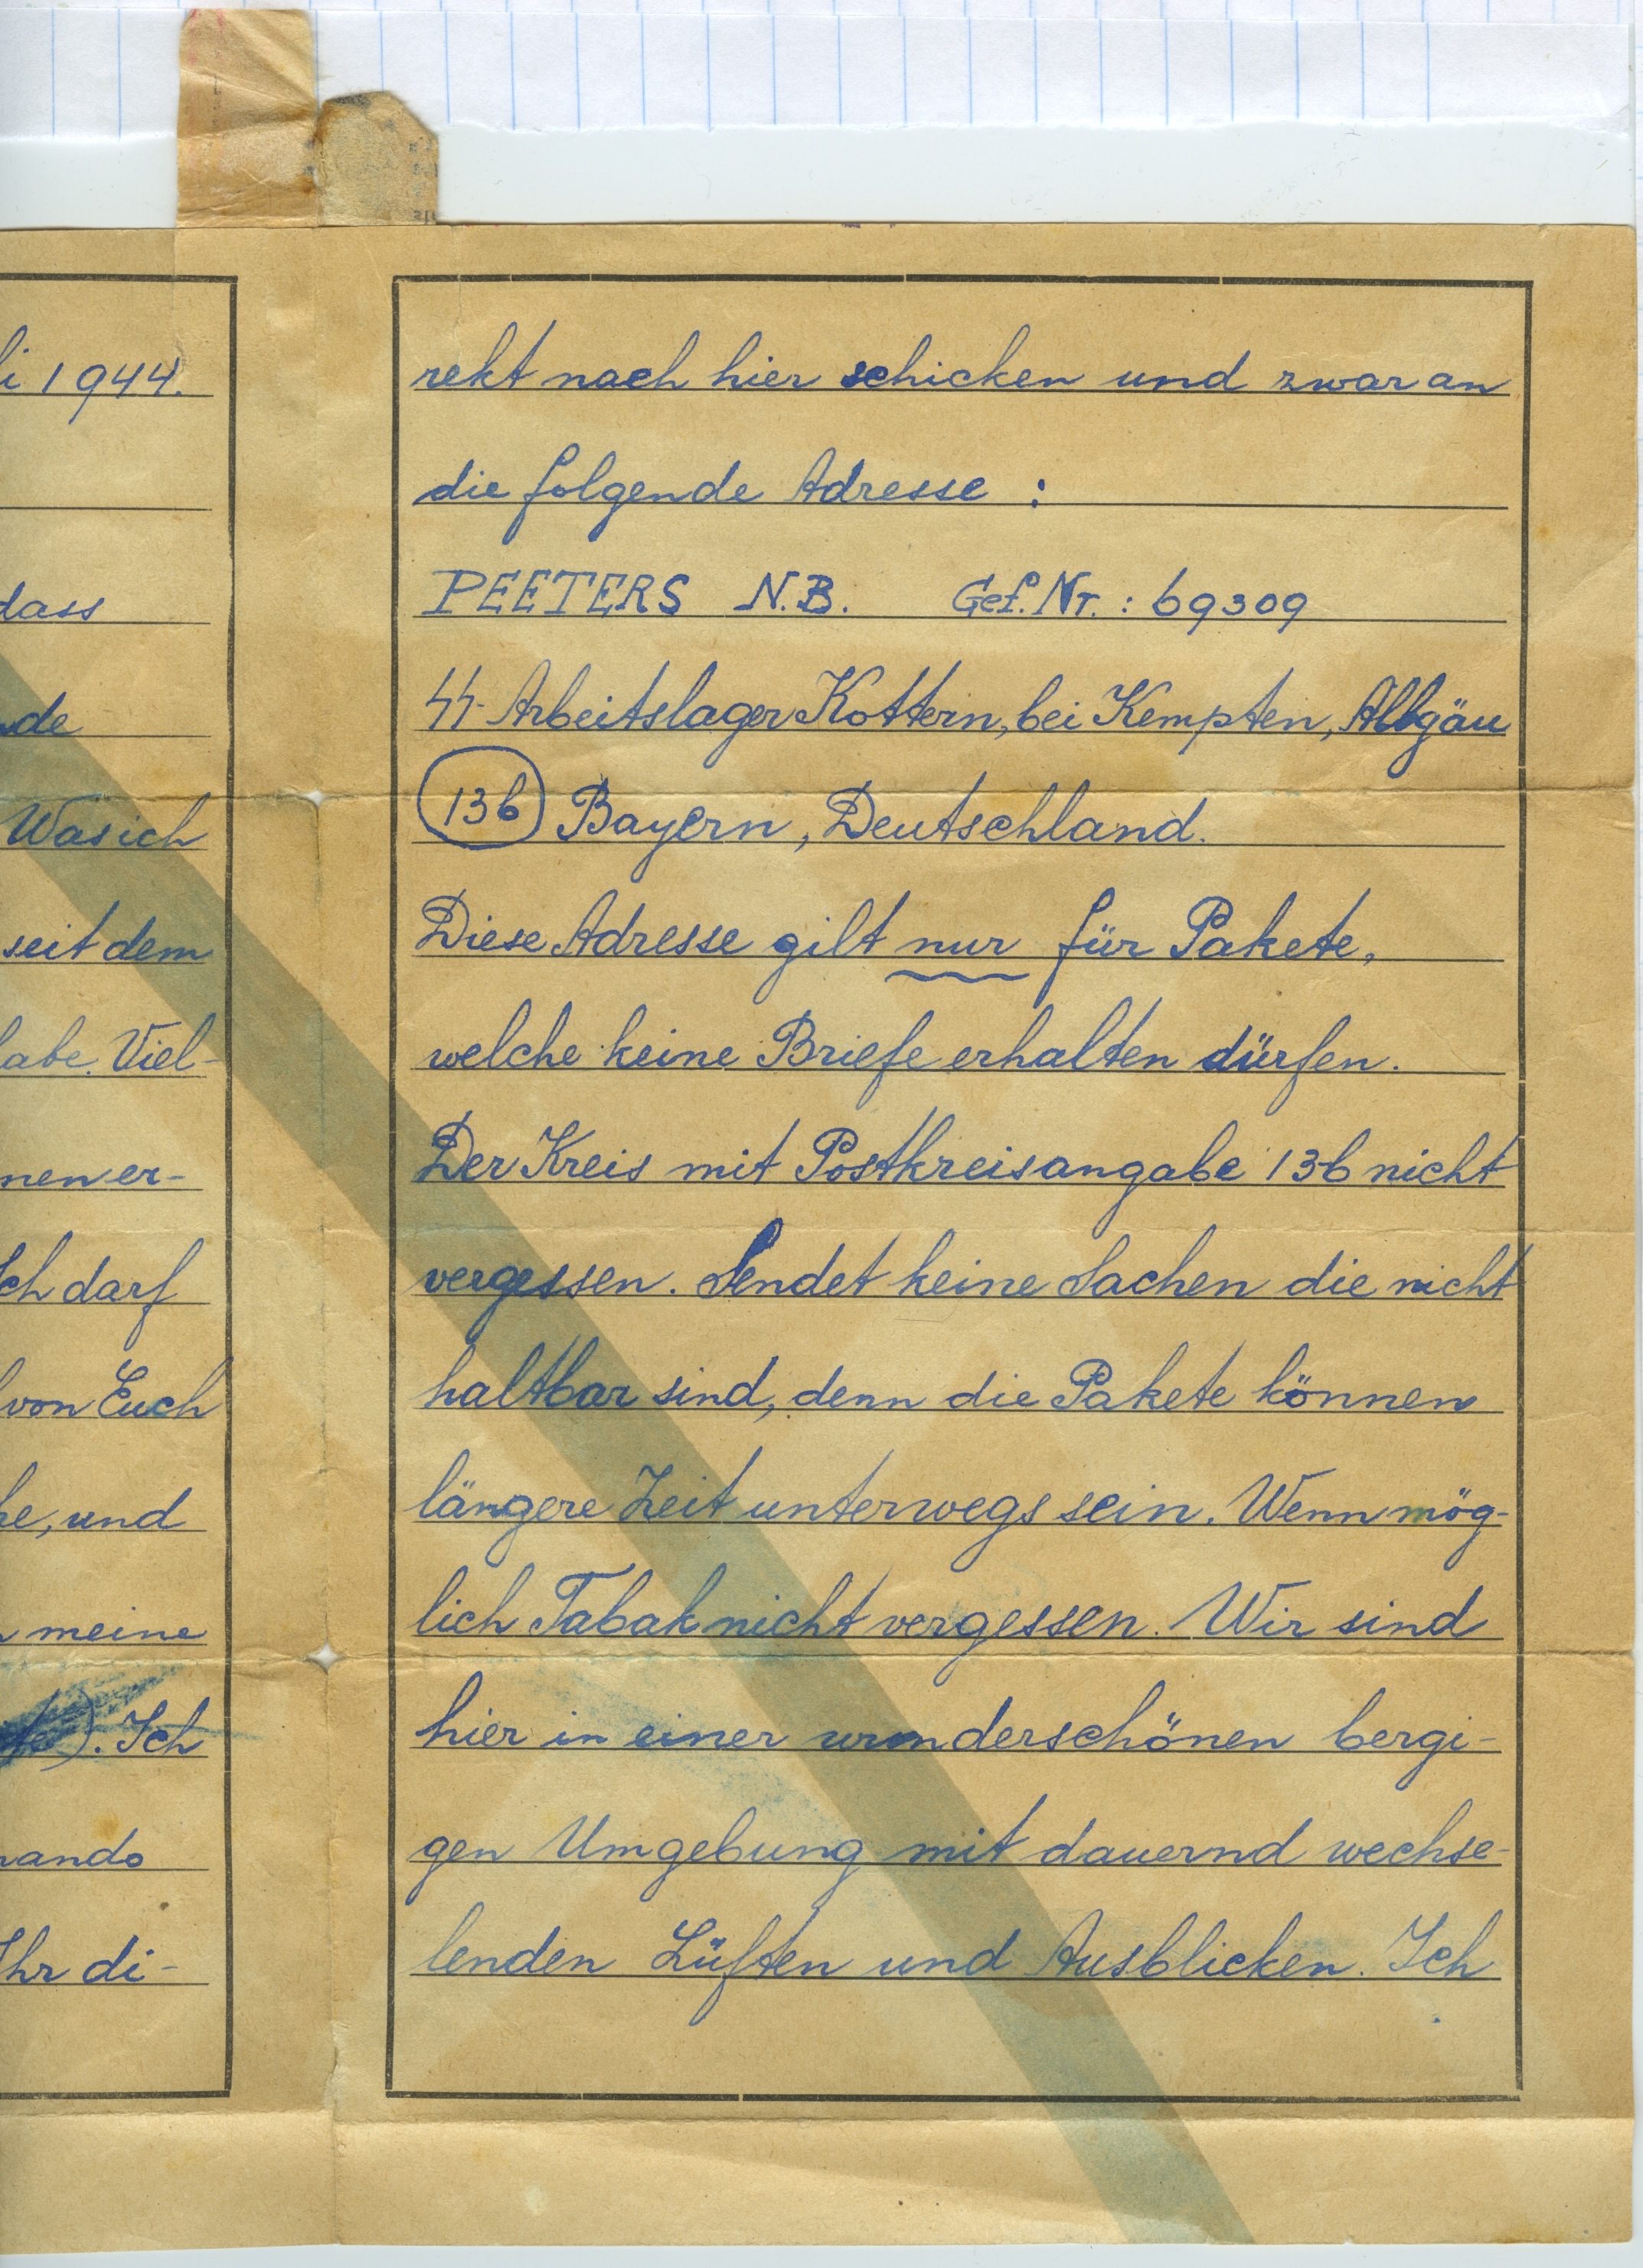 i 1944.
dass
de
Was ich
seit dem
abe. Viel-
nen er-
Ich darf
von Euch
he, und
meine
). Ich
mando
Ihr di-
rekt nach hier schicken und zwar an
die folgende Adresse :
PEETERS N.B. Gef. Nr. : 69309
SS-Arbeitslager Kottern, bei Kempten, Allgäu
13b Bayern, Deutschland.
Diese Adresse gilt nur für Pakete,
welche keine Briefe erhalten dürfen.
Der Kreis mit Postkreisangabe 13b nicht
vergessen. Sendet keine Sachen die nicht
haltbar sind, denn die Pakete können
längere Zeit unterwegs sein. Wenn mög-
lich Tabak nicht vergessen. Wir sind
hier in einer wunderschönen bergi-
gen Umgebung mit dauernd wechse-
lenden Lüften und Ausblicken. Ich